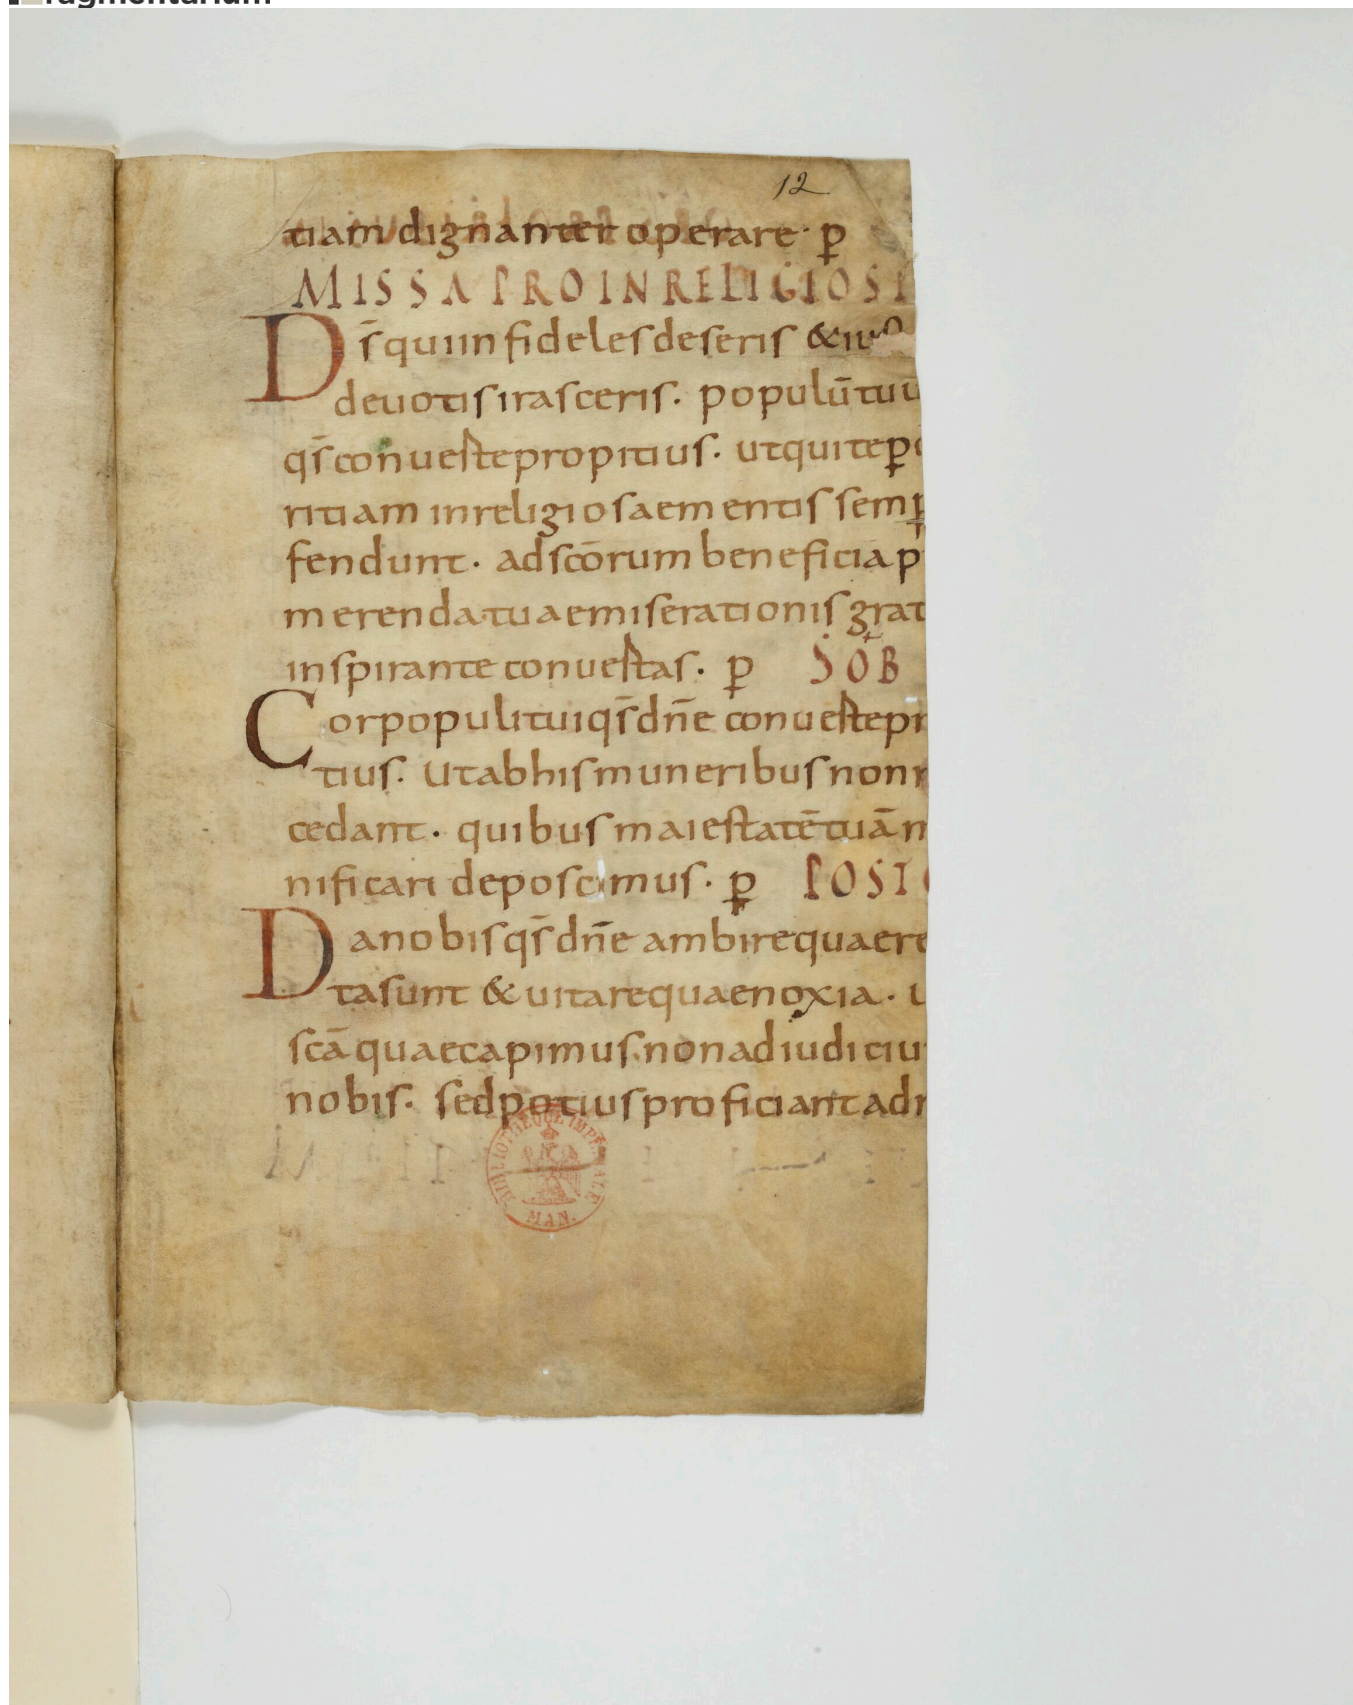 ragmentarium
12
tiam dignanter operare · p̱
MISSA PRO INRELIGIOSI
Ds̄ qui infideles deseris &
deuotis irasceris. populū tuū
qs̄ conuerte propitius. ut qui te ꝑ
ritiam inreligiosae mentis semꝑ
fendunt · ad scōrum beneficia p
merenda tuae miserationis grat
inspirante conuertas. p̱ SOB
Cor populi tui qs̄ dn̄e conuerte pr
tius. Ut ab his muneribus non r
cedant · quibus maiestatē tuā m
nificari deposcimus · p̱ POST
Da nobis qs̄ dn̄e ambire quae re
ta sunt & uitare quae noxia · u
scā quae capimus. non ad iudiciu
nobis. sed potius proficiant ad r
BIBLIOTHEQUE IMPERIALE
MAN.